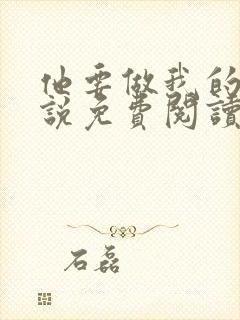 他要做我的
說免費閱讀
石磊